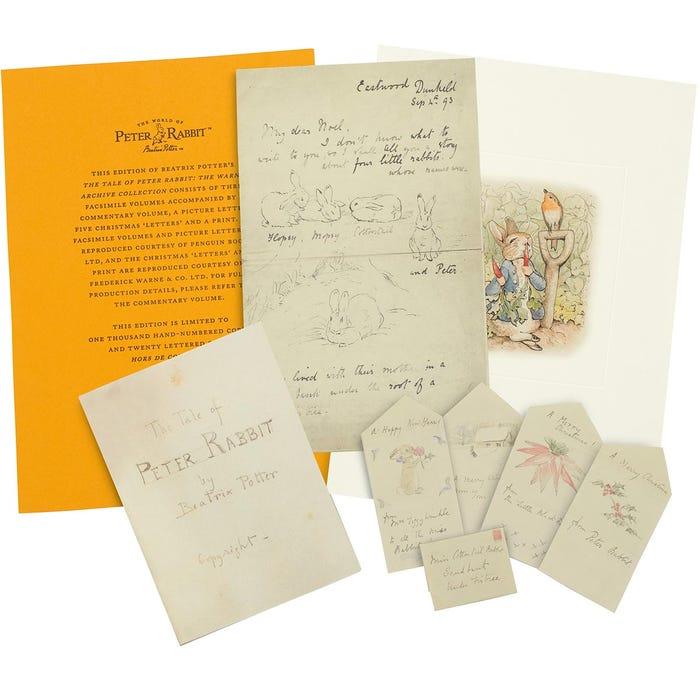 THE WORLD OF
PETER RABBIT™
Beatrix Potter™
THIS EDITION OF BEATRIX POTTER'S
THE TALE OF PETER RABBIT: THE WARN
ARCHIVE COLLECTION CONSISTS OF THR
FACSIMILE VOLUMES ACCOMPANIED BY
COMMENTARY VOLUME, A PICTURE LETTE
FIVE CHRISTMAS 'LETTERS' AND A PRINT.
FACSIMILE VOLUMES AND PICTURE LETTER
REPRODUCED COURTESY OF PENGUIN BOO
LTD, AND THE CHRISTMAS 'LETTERS' AND
PRINT ARE REPRODUCED COURTESY OF
FREDERICK WARNE & CO. LTD. FOR FUL
PRODUCTION DETAILS, PLEASE REFER T
THE COMMENTARY VOLUME.
THIS EDITION IS LIMITED TO
ONE THOUSAND HAND-NUMBERED COP
AND TWENTY LETTERED
HORS DE CO
Eastwood Dunkeld
Sep 4th 93
My dear Noel,
I don't know what to
write to you, so I shall tell you a story
about four little rabbits.
whose names were
Flopsy, Mopsy Cottontail
and Peter
lived with their mother in a
bank under the root of a
The Tale of
PETER RABBIT
by
Beatrix Potter
Copyright -
A Happy New Year
from
Mrs Tiggywinkle
to all the
Rabbit
A Merry
A Merry
Christmas!
from
the little
A Merry Christmas
from Peter Rabbit
Miss Cottontail Rabbit
Sandbank
Under Firtree